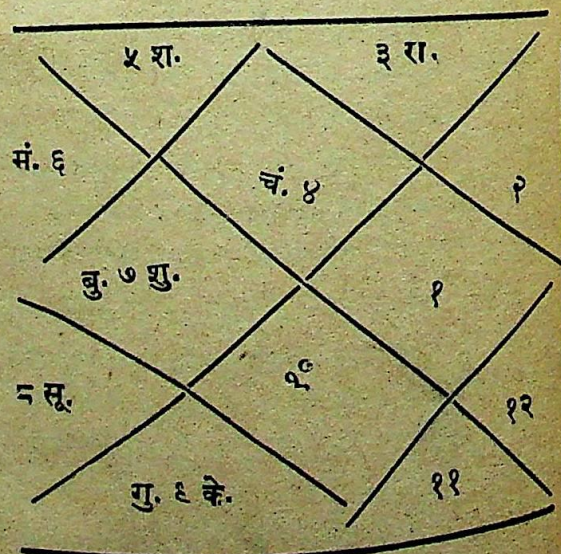 ५ श.
३ रा.
मं. ६
चं. ४
२
बु. ७ शु.
१
१०
८ सू.
१२
गु. ९ के.
११